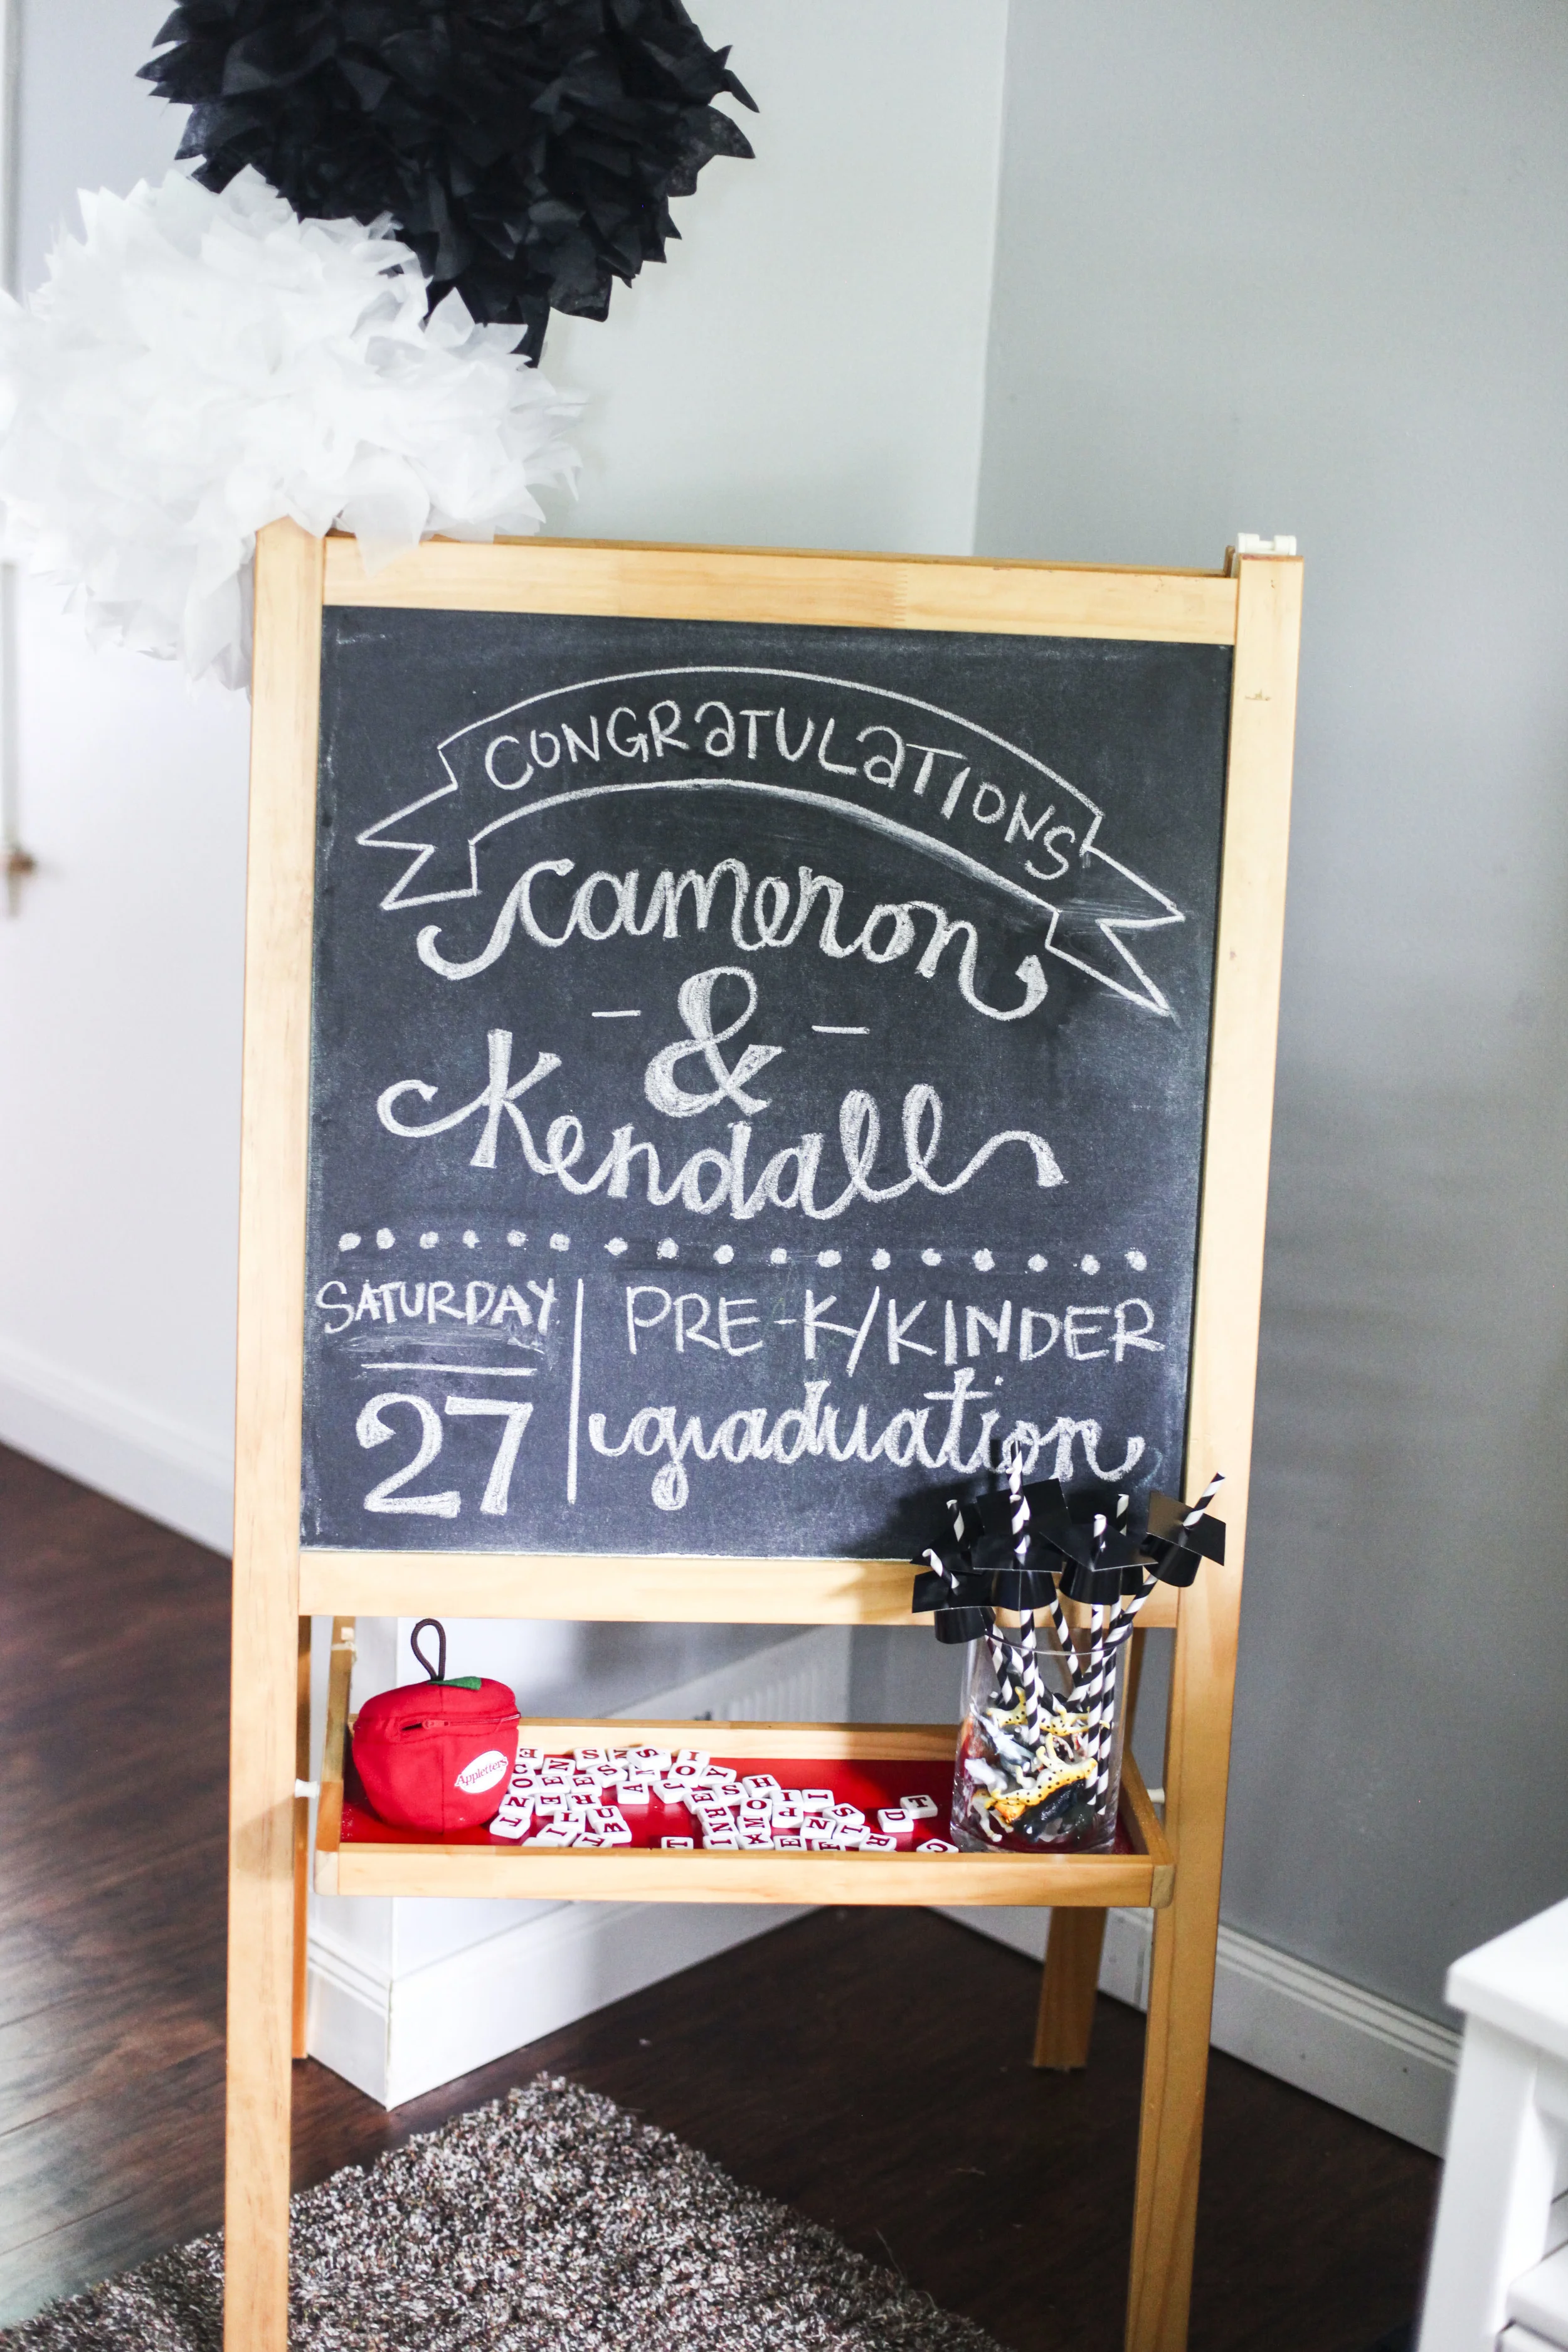 CONGRATULATIONS
Cameron
- & -
Kendall
SATURDAY
27
PRE-K/KINDER
graduation
Appletters